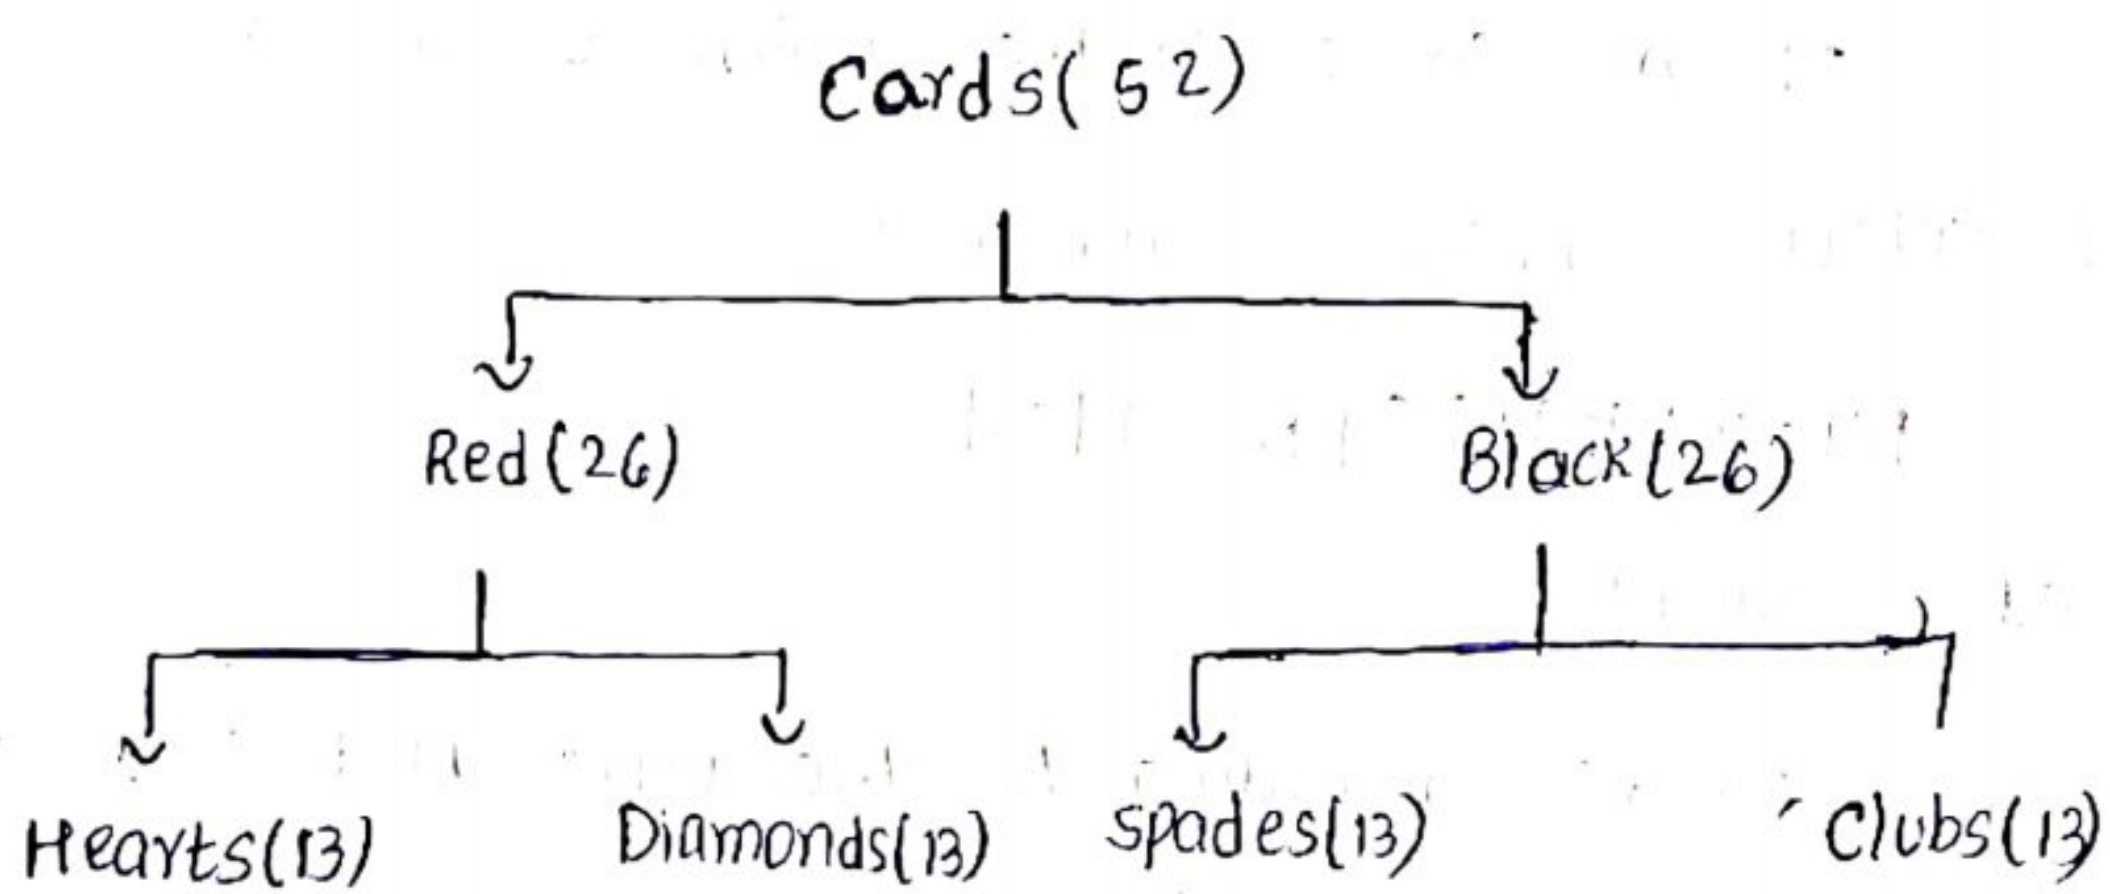 Cards(52)
Red(26) Black(26)
Hearts(13) Diamonds(13) spades(13) Clubs(13)